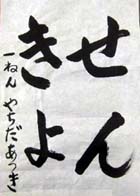 せん
きよ
一ねん やちだあつき